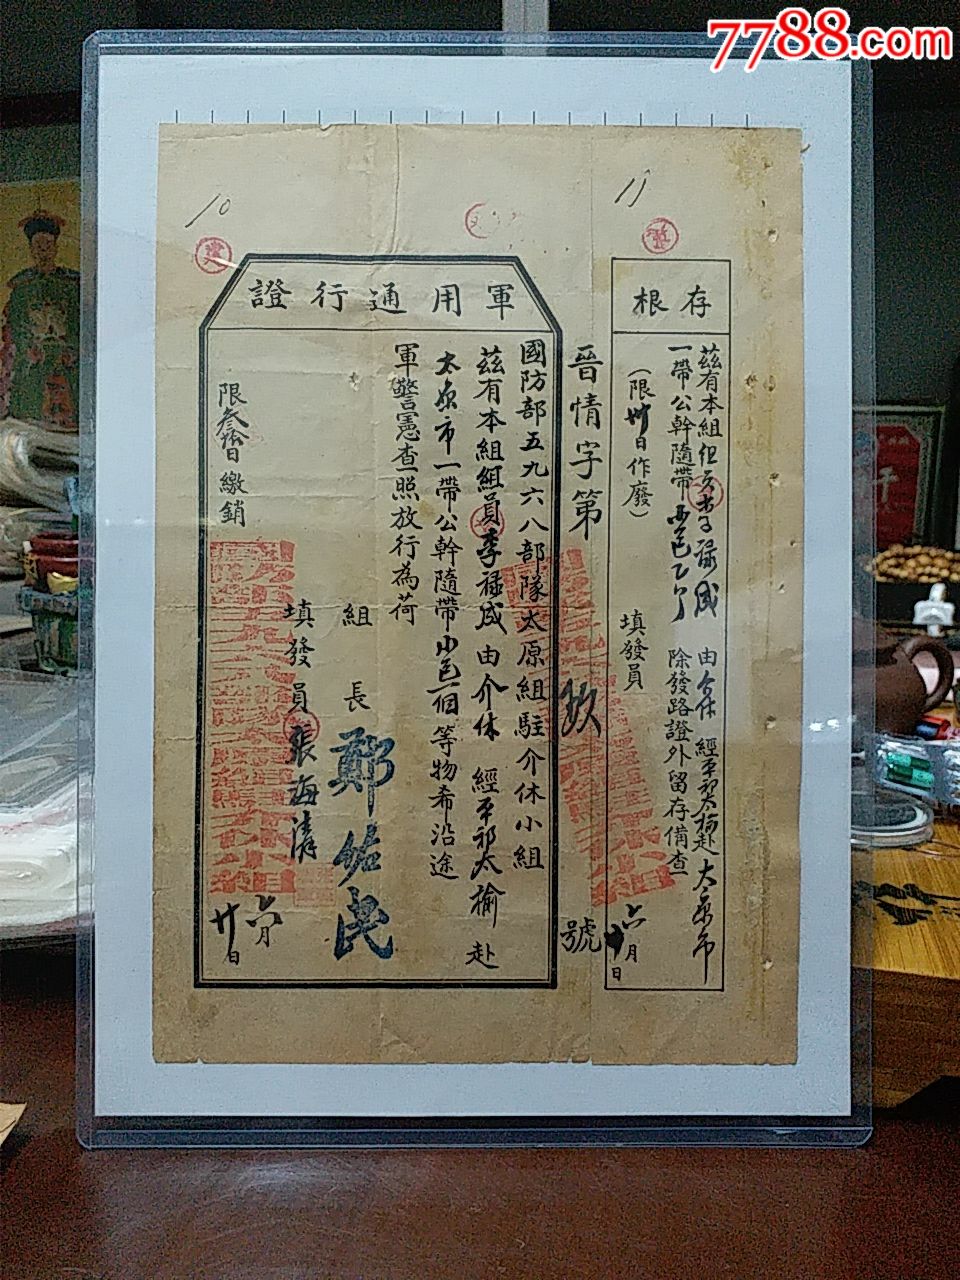 7788.com
11
10
存根
茲有本組組員李祿成 由介休 經平祁太榆赴太原市
一帶公幹隨帶 除發路證外留存備查
(限卅日作廢)
填發員
六月 日
晉情字第 玖 號
軍用通行證
國防部五九六八部隊太原組駐介休小組
茲有本組組員李祿成由介休 經平祁太榆 赴
太原市一帶公幹隨帶小包一個等物希沿途
軍警憲查照放行為荷
組長 鄭佐民
填發員 張海清
六月廿日
限叁拾日繳銷